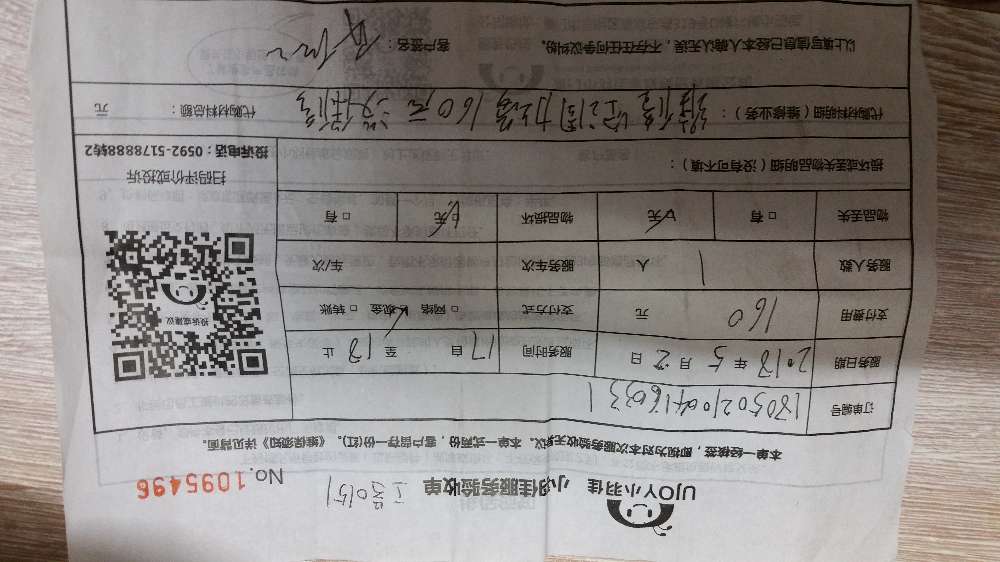 UJOY小羽佳 小羽佳服务验收单 工号0151 No.1095496
本单一经核签，即视为对本次服务验收无异议。本单一式两份，客户留存一份(红)。《维保须知》详见背面。
订单编号 1805021004160331
服务日期 2018年5月2日 服务时间 17自 至18止
支付费用 160 元 支付方式 □网络 □现金 □转账
服务人数 1 人 服务车次 车/次
物品丢失 □有 □无 物品损坏 □无 □有
投诉或建议
扫码评价或投诉
投诉电话：0592-5178888转2
损坏或丢失物品明细（没有可不填）：
代购材料明细（维修业务）：维修空调 160元 没保修
代购材料总额： 元
以上填写信息已经本人确认无误，不存在任何争议纠纷。 客户签名：